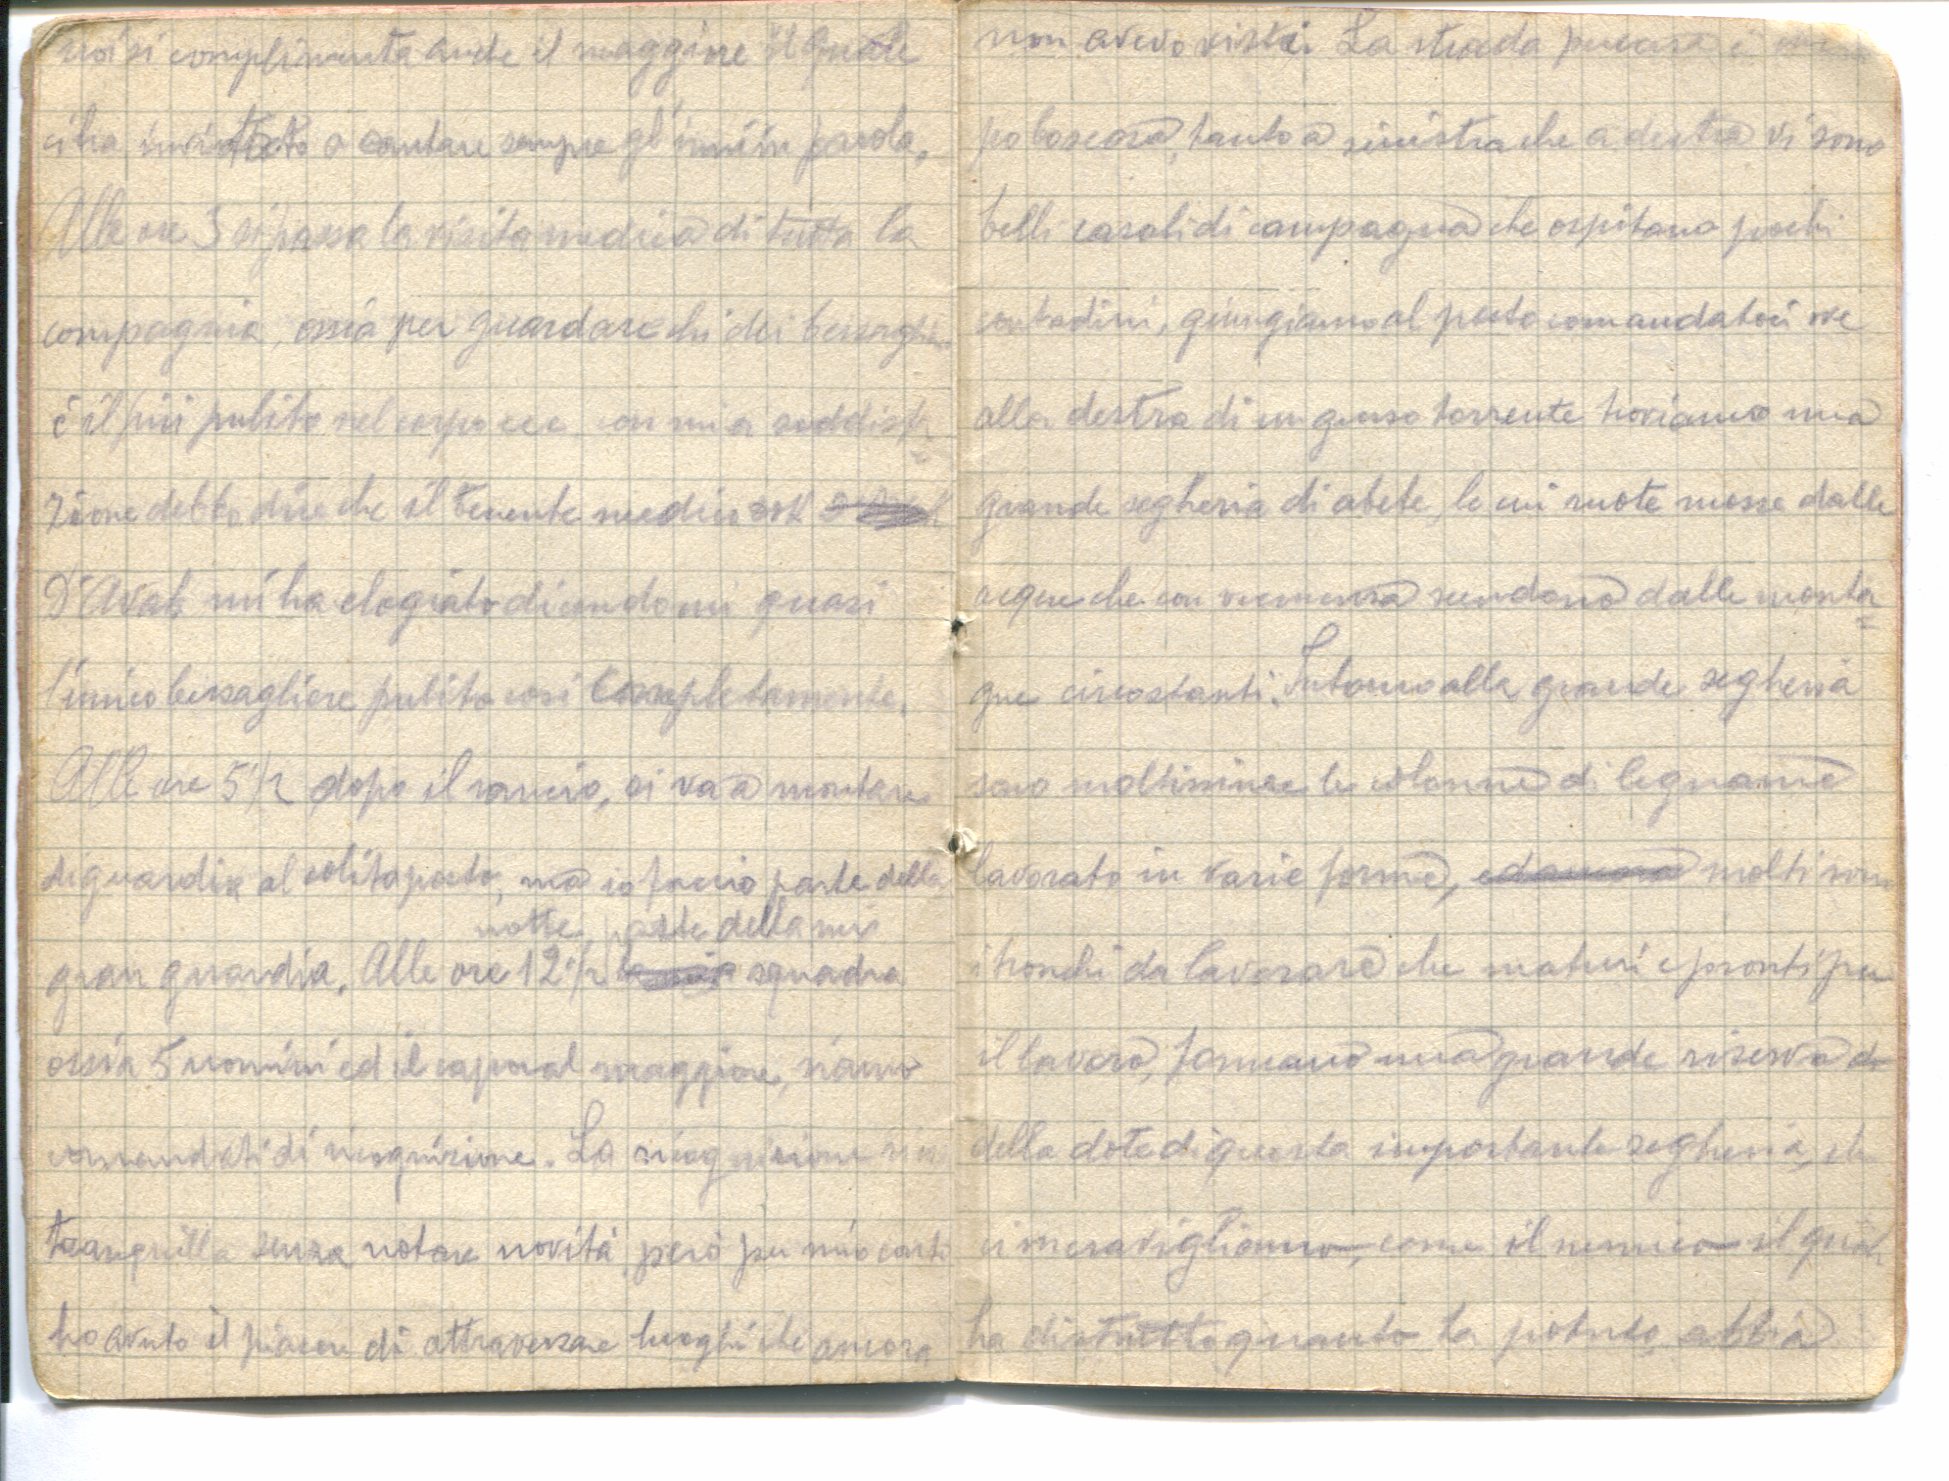 noi si complimenta anche il maggiore il quale
ci ha invitato a cantare sempre gl'inni in parola.
Alle ore 3 si passa la visita medica di tutta la
compagnia, ossia per guardare chi dei bersaglieri
è il più pulito nel corpo ecc. con mia soddisfa
zione debbo dire che il Tenente medico
D'Avat mi ha elogiato dicendomi quasi
l'unico bersagliere pulito così completamente.
Alle ore 5 1/2 dopo il rancio, si va a montare
di guardia al solito posto, ma io faccio parte della
notte parte della mia
gran guardia. Alle ore 12 1/2 squadra
ossia 5 uomini ed il caporal maggiore, siamo
comandati di ricognizione. La ricognizione
tranquilla senza notare novità, però per mio conto
ho avuto il piacere di attraversare luoghi che ancora
non avevo visti. La strada percorsa è
po boscosa, tanto a sinistra che a destra vi sono
belli casali di campagna che ospitano pochi
contadini, giungiamo al posto comandatoci ove
alla destra di un grosso torrente troviamo una
grande segheria di abete, le cui ruote mosse dalle
acque che con veemenza scendono dalle monta
gne circostanti. Intorno alla grande segheria
sono moltissime le colonne di legname
lavorato in varie forme, molti sono
i tronchi da lavorare che maturi e pronti per
il lavoro, formano una grande riserva
della dote di questa importante segheria, che
ci meravigliamo, come il nemico il quale
ha distrutto quanto ha potuto, abbia